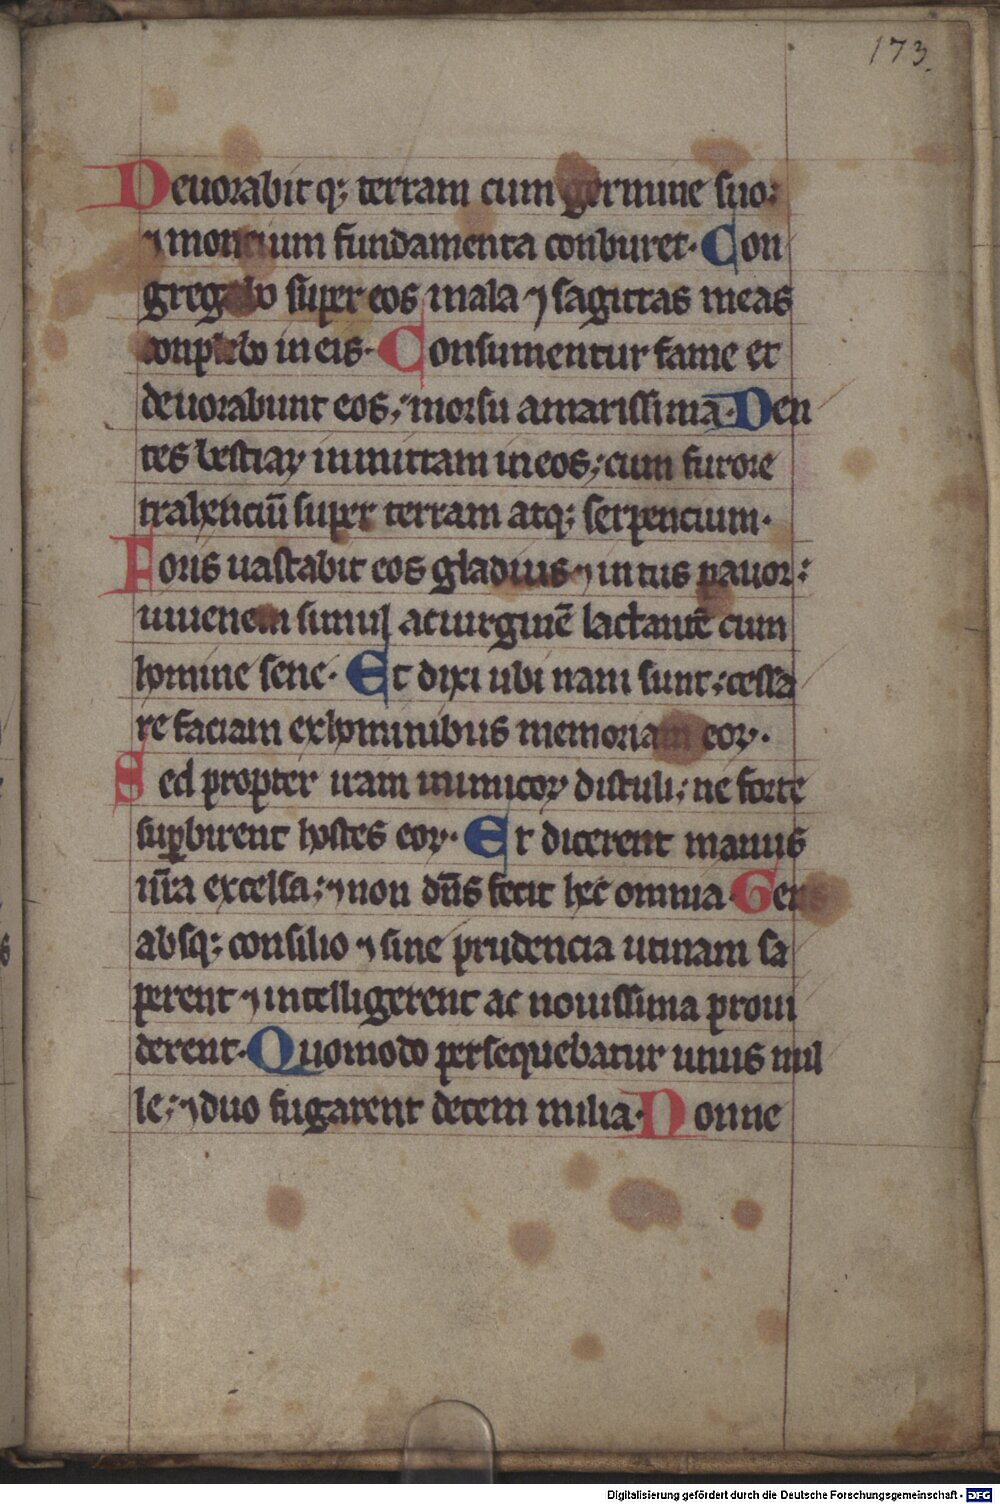 173.
Deuorabit q; terram cum germine suo:
⁊ montium fundamenta conburet. Con
gregabo super eos mala ⁊ sagittas meas
conplebo in eis. Consumentur fame et
deuorabunt eos; morsu amarissimā. Den
tes bestiaꝝ inmittam in eos; cum furore
trahenciū super terram atq; serpencium.
Foris uastabit eos gladius ⁊ intus pauor:
iuuenem simul ac uirginē lactantē cum
homine sene. Et dixi ubi nam sunt; cessa
re faciam ex hominibus memoriam eoꝝ.
Sed propter iram inimicoꝝ distuli; ne forte
suꝑbirent hostes eoꝝ. Et dicerent manus
nr̄a excelsa; ⁊ non dn̄s fecit hec omnia. Gens
absq; consilio ⁊ sine prudencia utinam sa
perent ⁊ intelligerent ac nouissima proui
derent. Quomodo persequebatur unus mil
le; ⁊ duo fugarent decem milia. Nonne
Digitalisierung gefördert durch die Deutsche Forschungsgemeinschaft - DFG